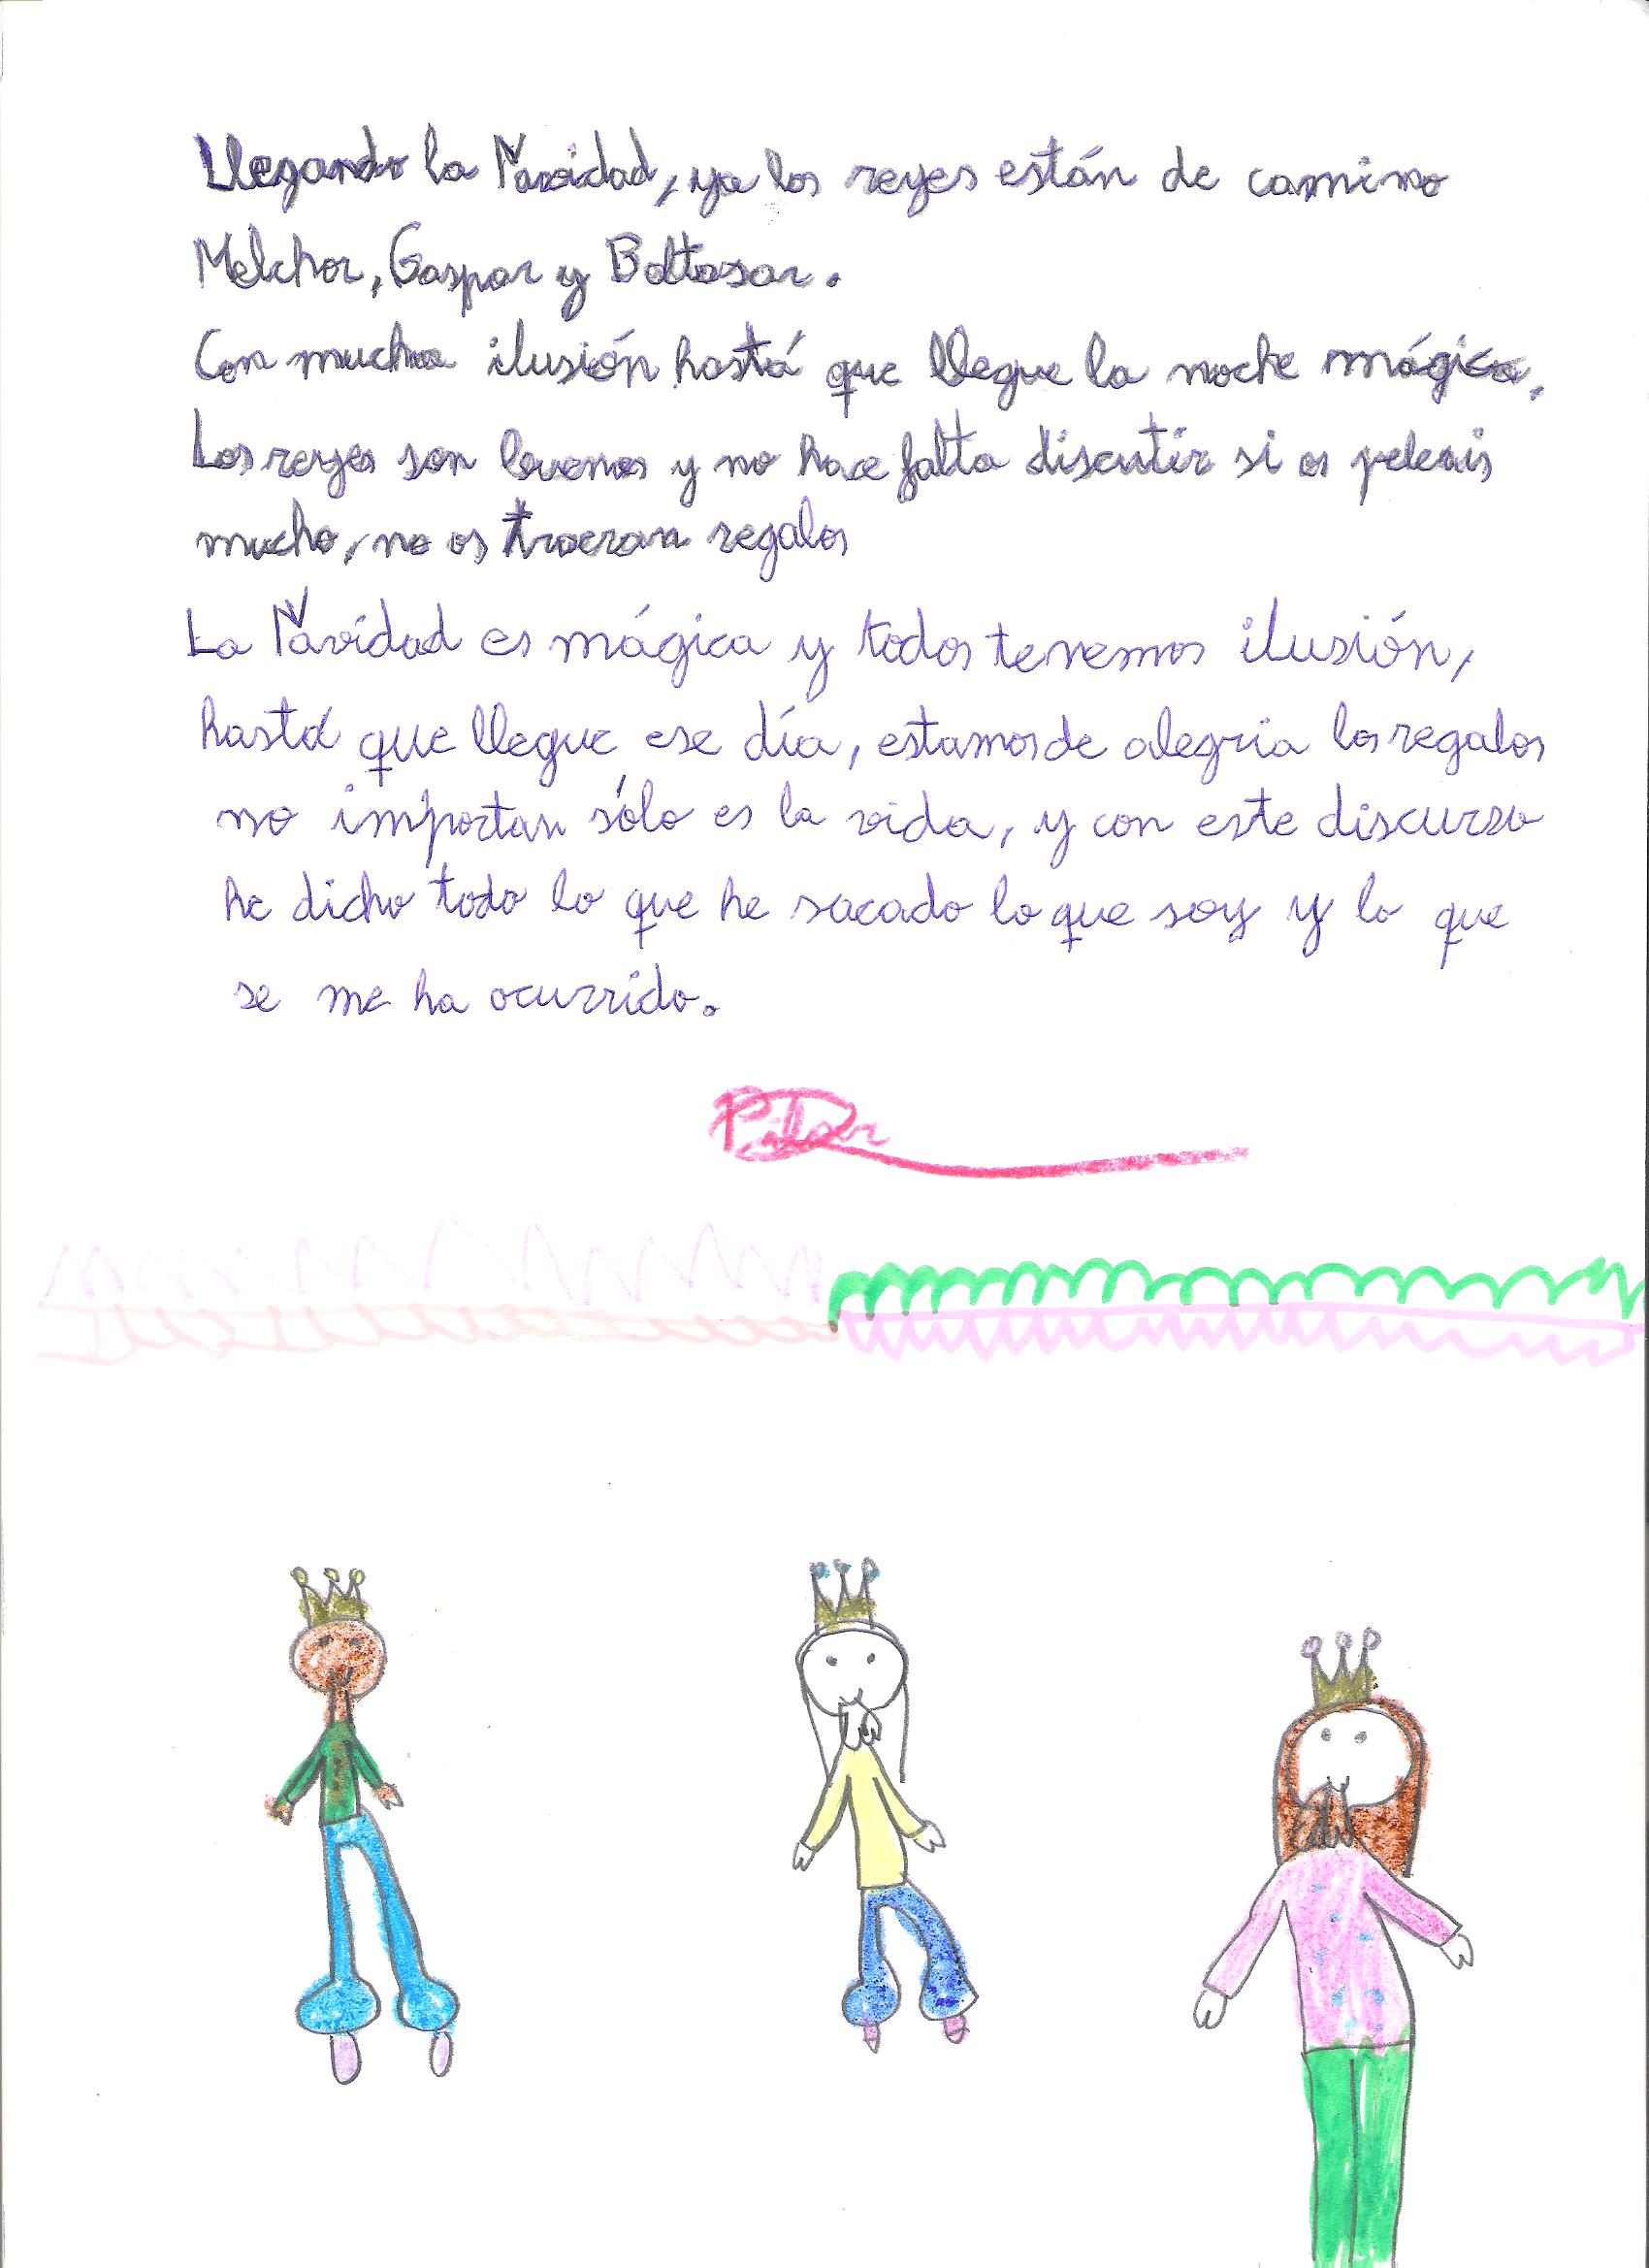 Llegando la Navidad, ya los reyes están de camino
Melchor, Gaspar y Baltasar.
Con mucha ilusión hastá que llegue la noche mágica.
Los reyes son buenos y no hace falta discutir si os peleais
mucho, no os traeran regalos
La Navidad es mágica y todos tenemos ilusión,
hastá que llegue ese día, estamos de alegria los regalos
no importan sólo es la vida, y con este discurso
he dicho todo lo que he sacado lo que soy y lo que
se me ha ocurrido.
Pilar